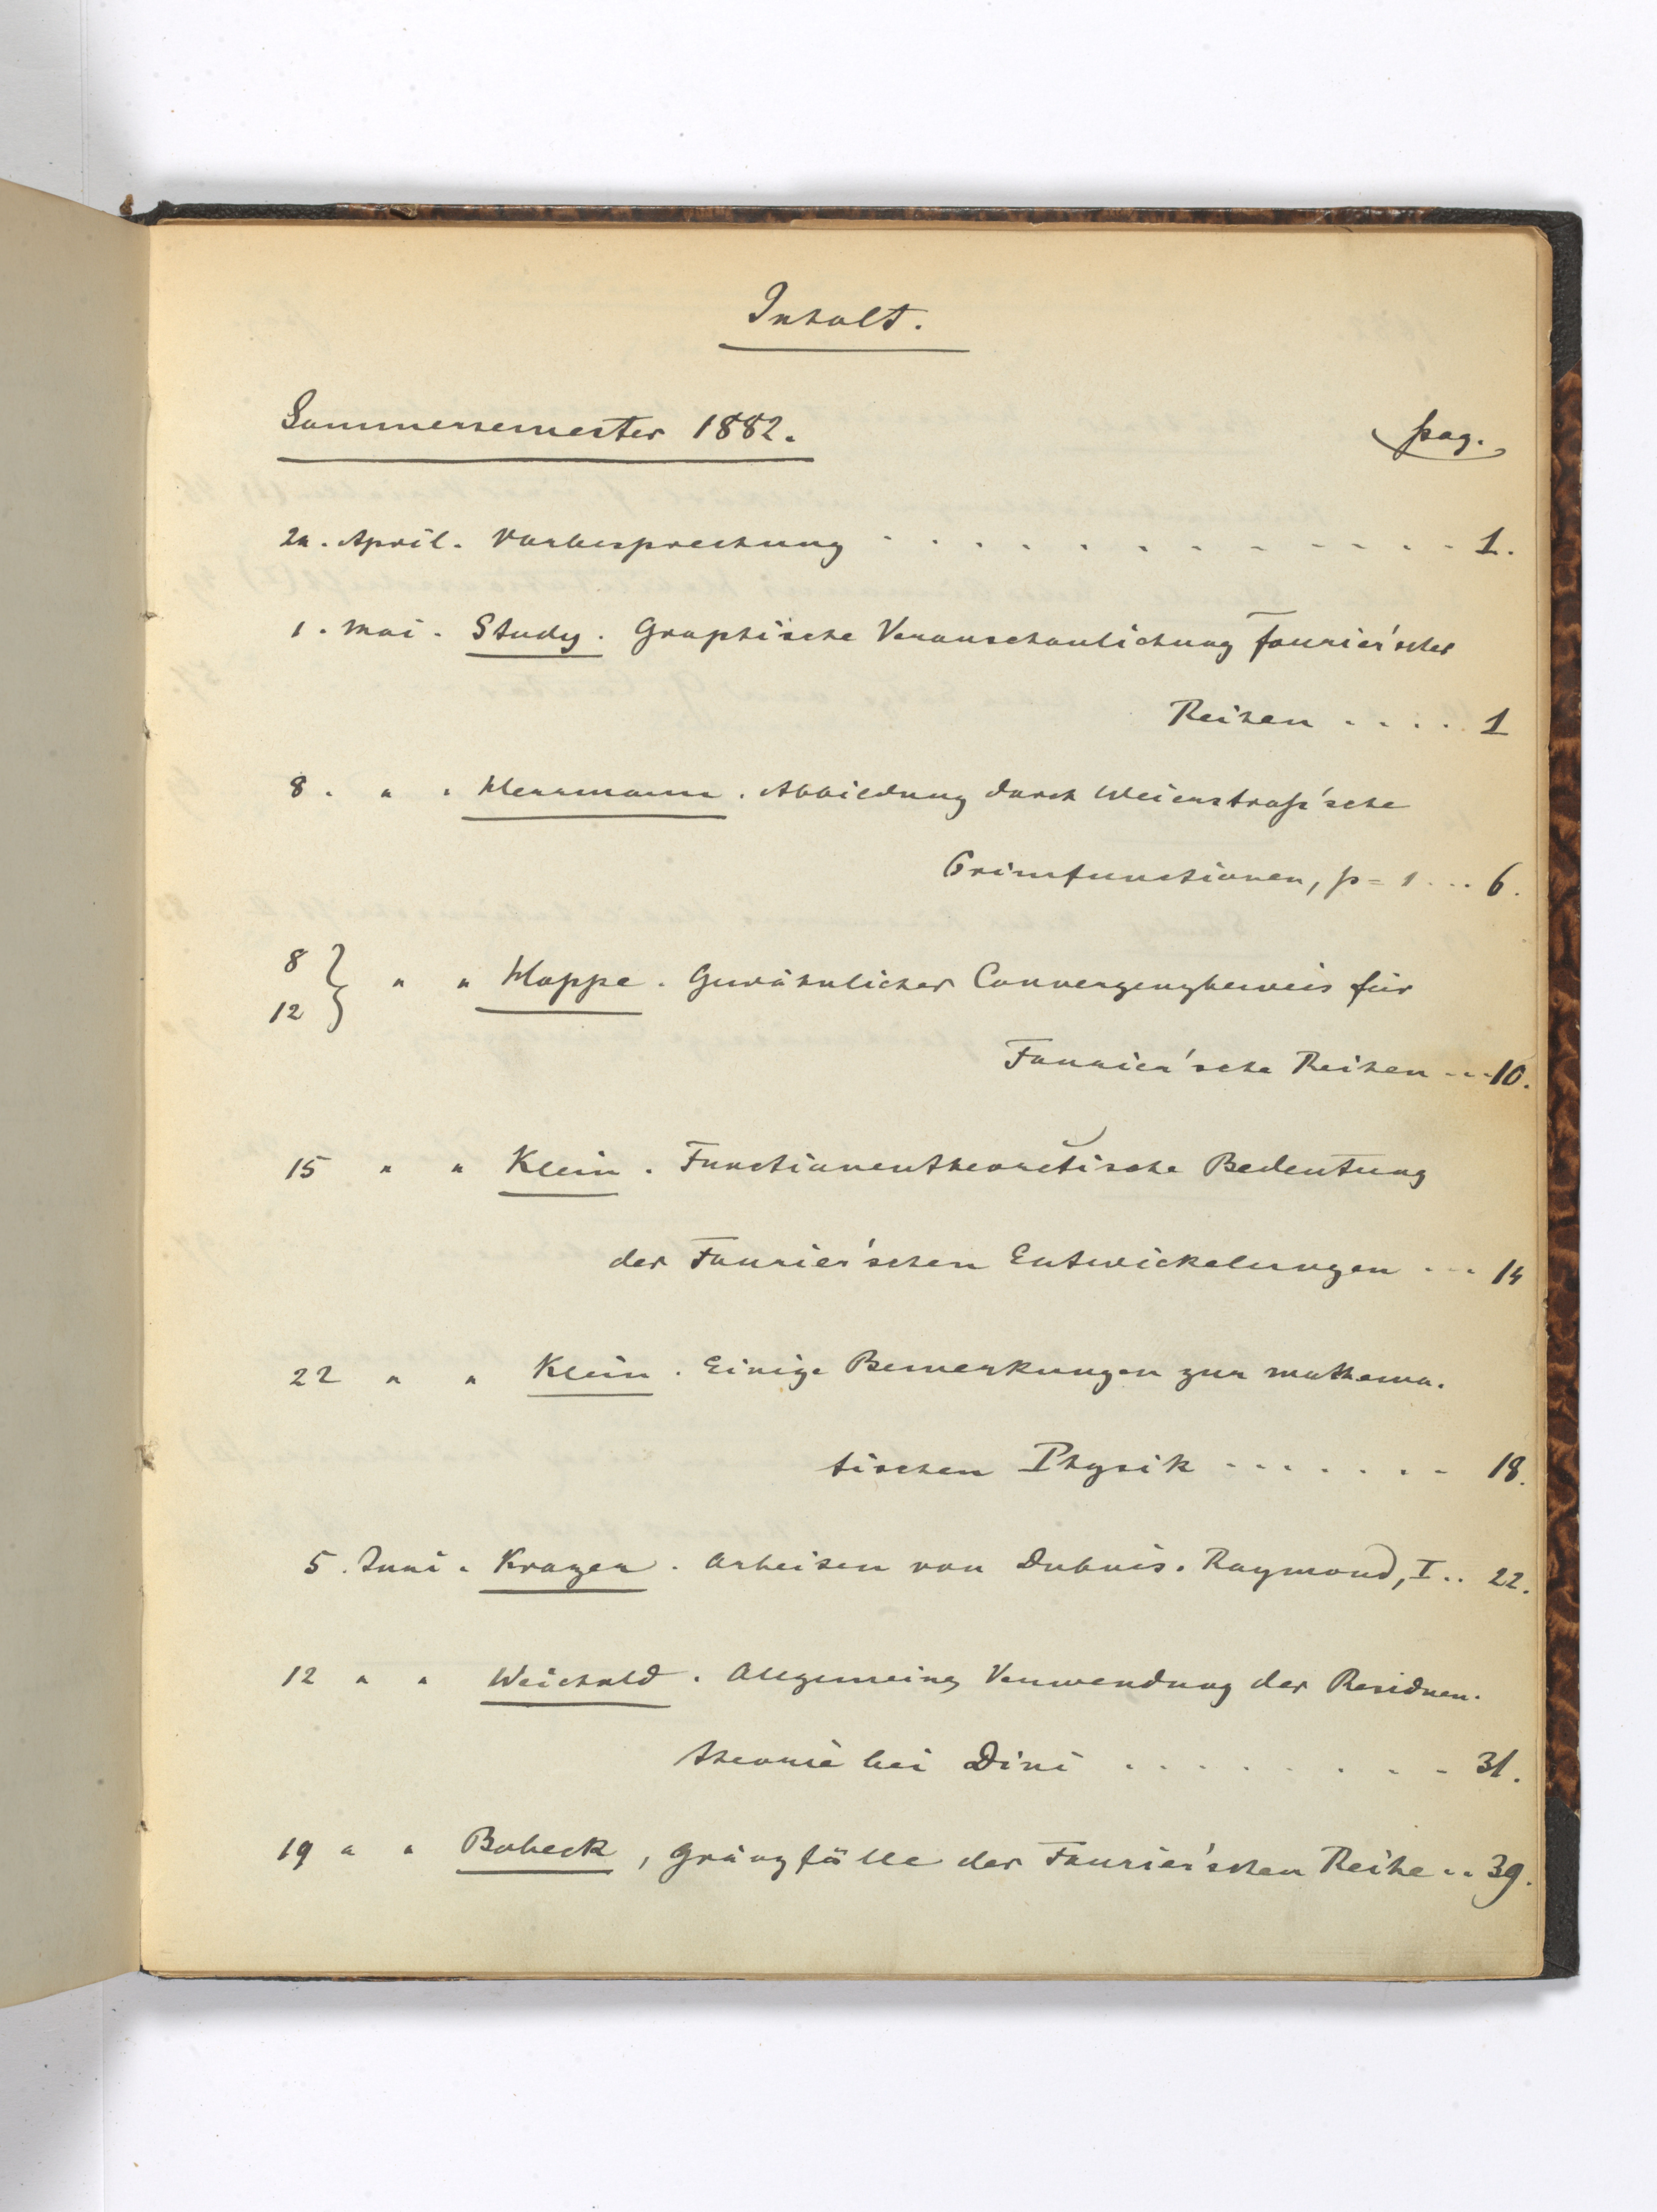 Inhalt.
Sommersemester 1882.
pag.
April. Vorbesprechung . . . . . . . . . . . 1.
1. Mai. Study. Graphische Veranschaulichung Fourier'scher
Reihen . . . . . 1
8. " . Herrmann. Abbildung durch Weierstraß'sche
Primfunctionen, p = 1 . . . 6.
8 } " " Hoppe. Gewöhnlicher Convergenzbeweis für
12
Fourier'sche Reihen . . . 10.
15 " " Klein. Functionentheoretische Bedeutung
der Fourier'schen Entwickelungen . . . 14
22 " " Klein. Einige Bemerkungen zur mathema-
tischen Physik . . . . . . . 18.
5. Juni. Krazer. Arbeiten von Dubois-Raymond, I . . 22.
12 " " Weichold. Allgemeine Verwendung der Residuen-
theorie bei Dini . . . . . . . . 31.
19 " " Bobeck, Gränzfälle der Fourier'schen Reihe . . 39.